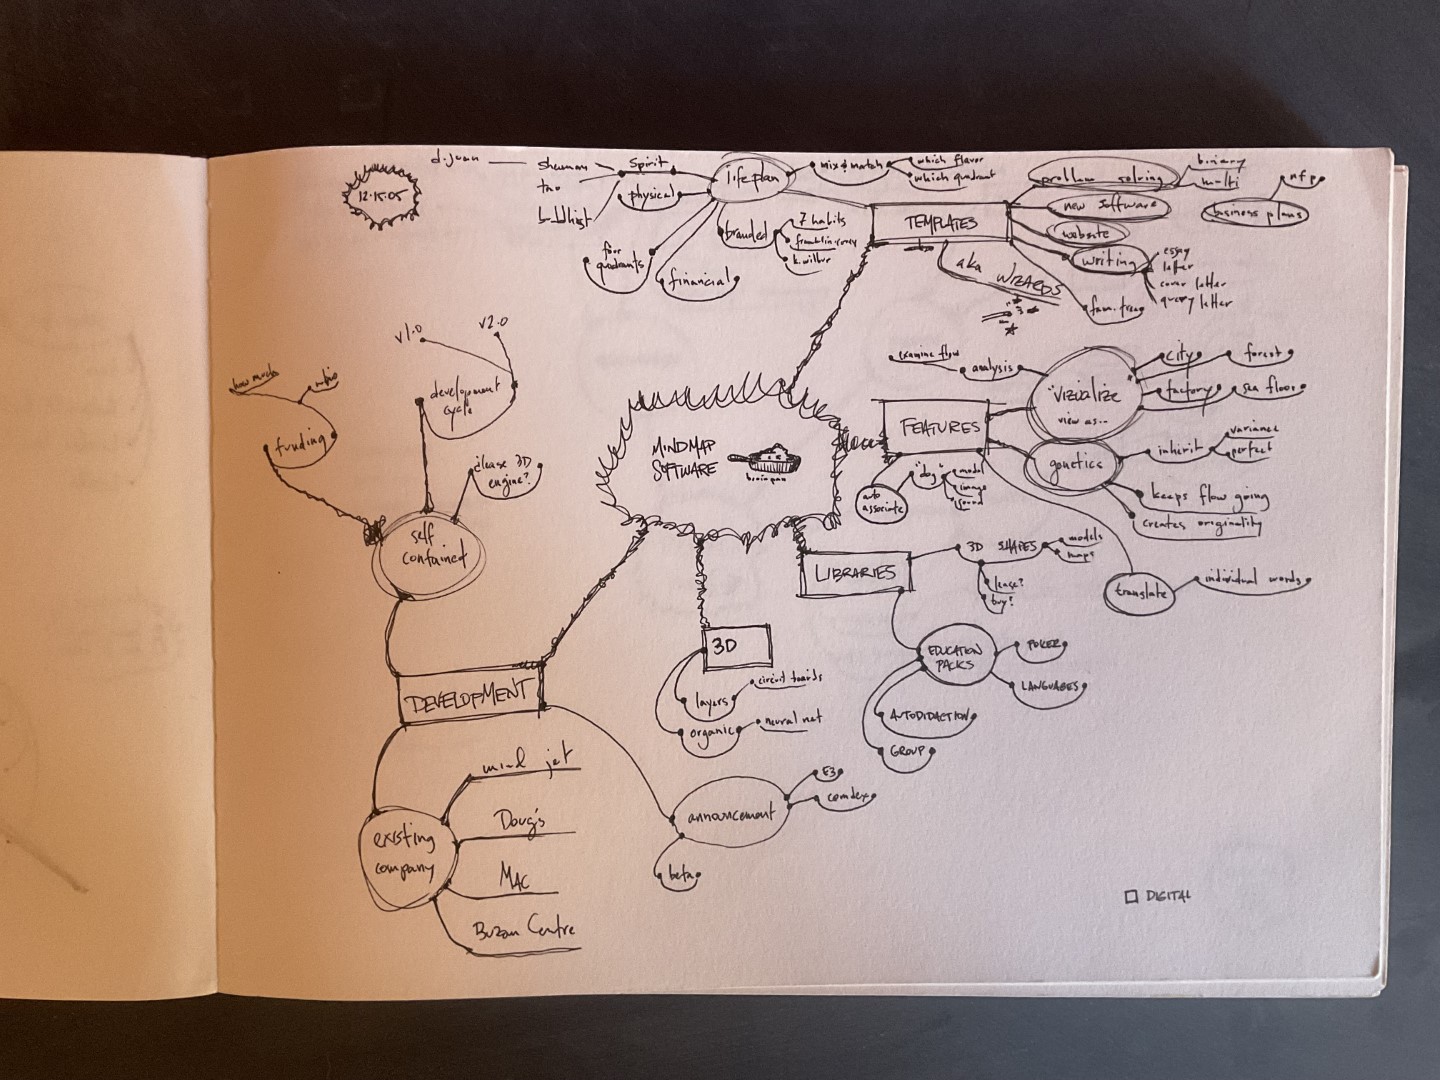 12.15.05
d. juan
shaman
tao
buddhist
spirit
physical
life plan
four
quadrants
financial
branded
7 habits
franklin-covey
k. wilbur
mix & match
which flavor
which quadrant
TEMPLATES
aka WIZARDS
problem solving
binary
multi
new software
website
business plans
nfp
writing
essay
letter
cover letter
query letter
fam. tree
v1.0
v2.0
development
cycle
how much
who
funding
please 3D
engine?
self
contained
MINDMAP
SOFTWARE
brainpan
FEATURES
examine flow
analysis
"vizualize"
view as...
city
forest
factory
sea floor
genetics
inherit
variance
perfect
keeps flow going
creates originality
auto
associate
"dog"
model
image
sound
translate
individual words
LIBRARIES
3D SHAPES
models
maps
lease?
buy?
EDUCATION
PACKS
POKER
LANGUAGES
AUTODIDACTION
GROUP
3D
layers
circuit boards
organic
neural net
DEVELOPMENT
existing
company
mind jet
Doug's
MAC
Buzan Centre
announcement
E3
comdex
beta
DIGITAL